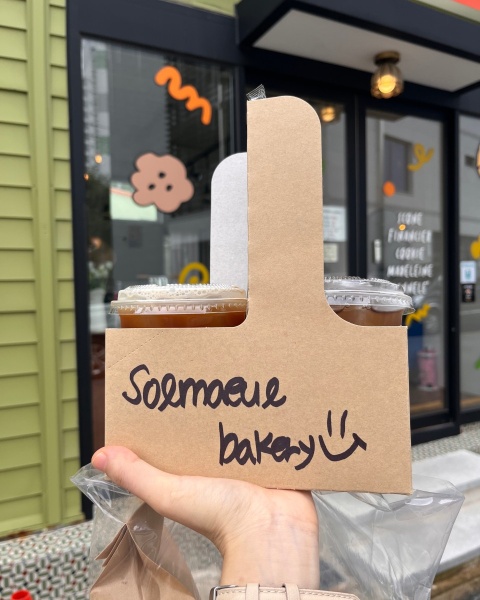 Solmaeul
bakery
SCONE
FINANCIER
COOKIE
MADELEINE